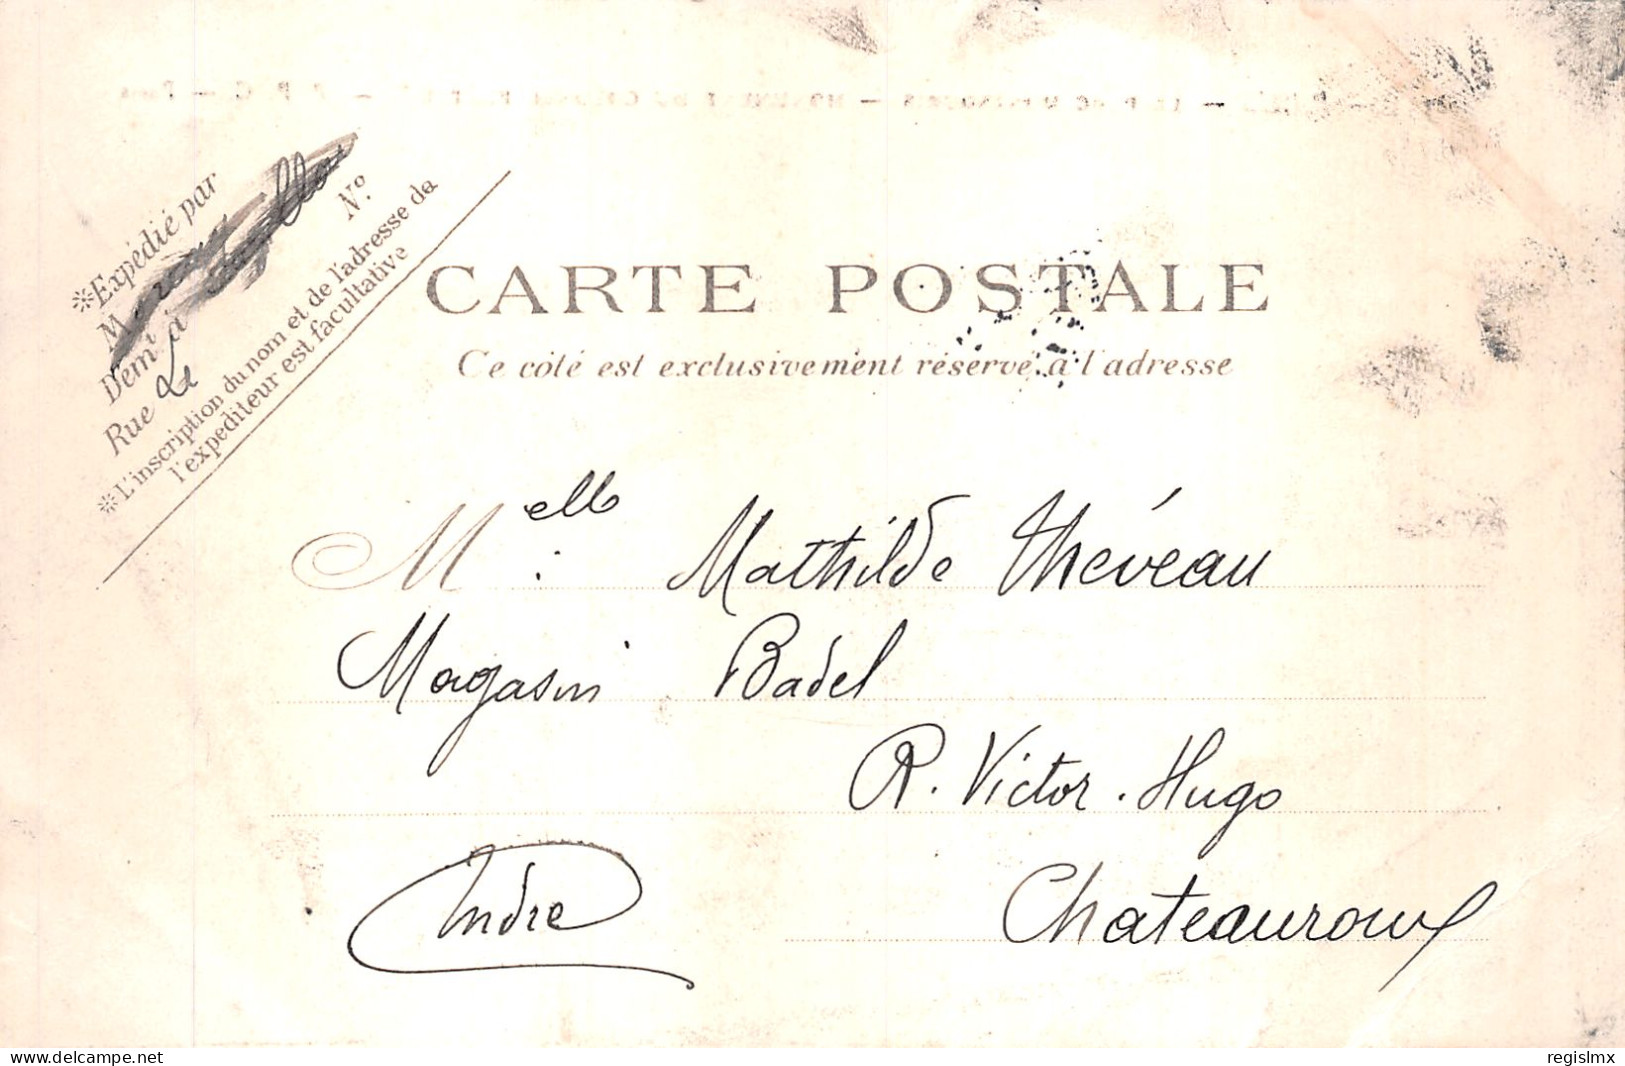 ※Expédié par
M
Demt à
Rue Le Nº
※L'inscription du nom et de l'adresse de
l'expéditeur est facultative
CARTE POSTALE
Ce côté est exclusivement réservé à l'adresse
Melle Mathilde Théveau
Magasin Badel
R. Victor-Hugo
Indre Chateauroux
www.delcampe.net
regislmx